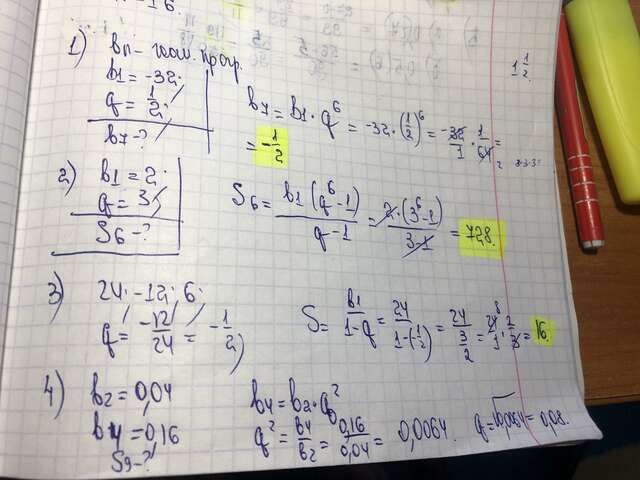 1) bn - геом. прогр.
b1 = -32.
q = 1/2.
b7 - ?
b7 = b1 · q^6 = -32 · (1/2)^6 = -32/1 · 1/64 =
= -1/2
1 1/2
2) b1 = 2.
q = 3
S6 - ?
S6 = b1(q^6-1)/q-1 = 2·(3^6-1)/3-1 = 728.
3) 24. -12. 6.
q = -12/24 = -1/2
S = b1/1-q = 24/1-(-1/2) = 24/(3/2) = 24/1 · 2/3 = 16.
4) b2 = 0,04
b4 = 0,16
S9 - ?
b4 = b2 · q^2
q^2 = b4/b2 = 0,16/0,04 = 0,0064. q = √0,0064 = 0,08.